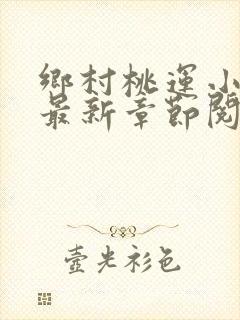 鄉村桃運小
最新章節閱
壺光衫色